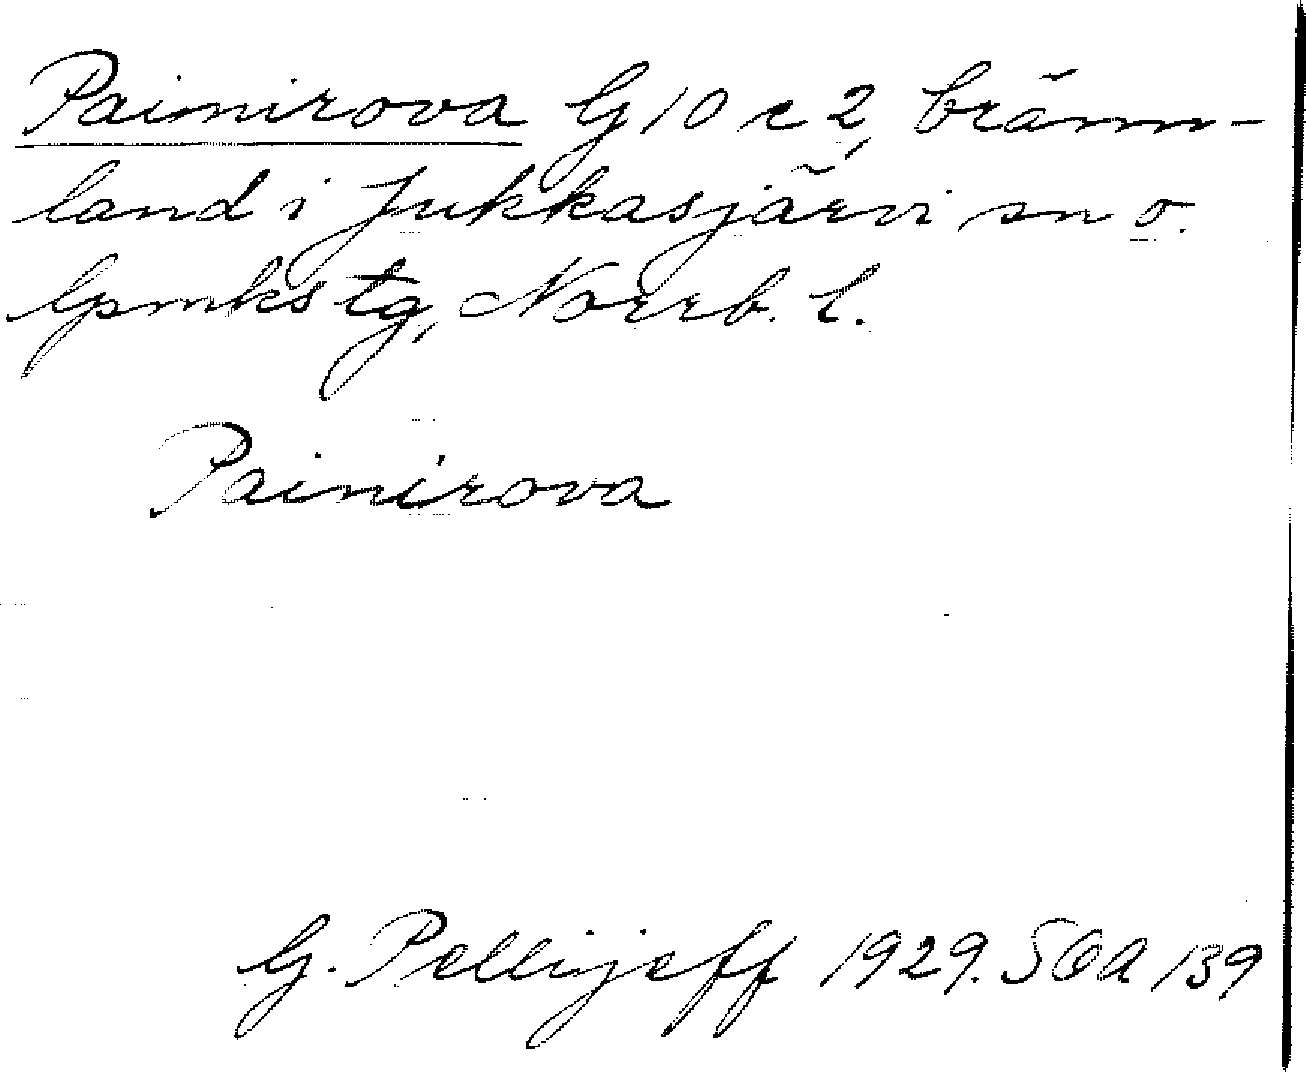 Painirova G 10 c 2, bränn-
land i Jukkasjärvi sn o.
lpmks tg, Norrb. l.
Painirova
G. Pellijeff 1929. SOA 139